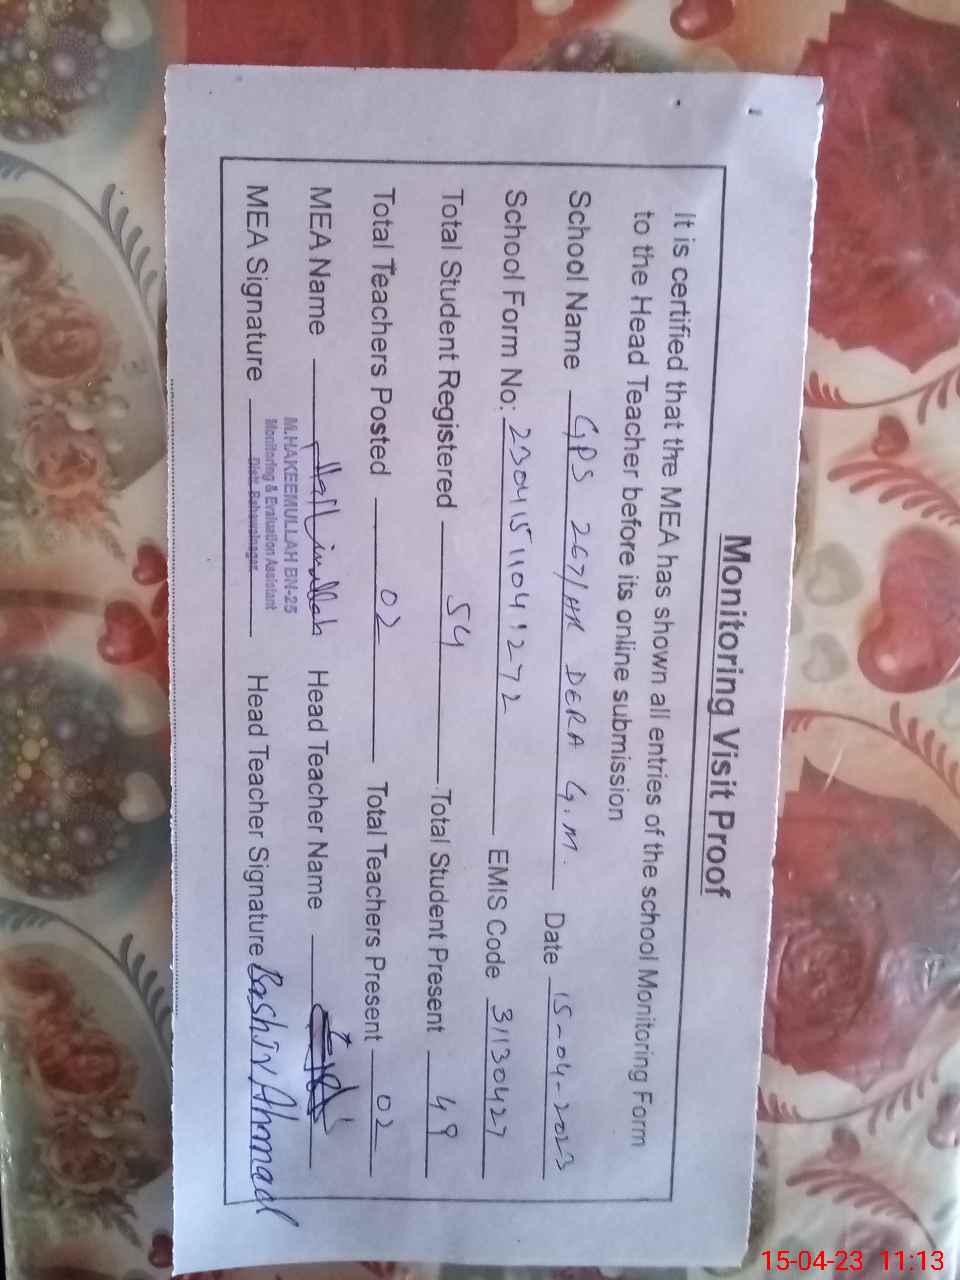 Monitoring Visit Proof
It is certified that the MEA has shown all entries of the school Monitoring Form
to the Head Teacher before its online submission
School Name GPS 267/HR DERA G.M. Date 15-04-2023
School Form No: 23041511041272 EMIS Code 31130427
Total Student Registered 54 Total Student Present 49
Total Teachers Posted 02 Total Teachers Present 02
MEA Name Head Teacher Name
M.HAKEEMULLAH BN-25
Monitoring & Evaluation Assistant
Distt. Bahawalnagar
MEA Signature Head Teacher Signature Bashir Ahmad
15-04-23 11:13